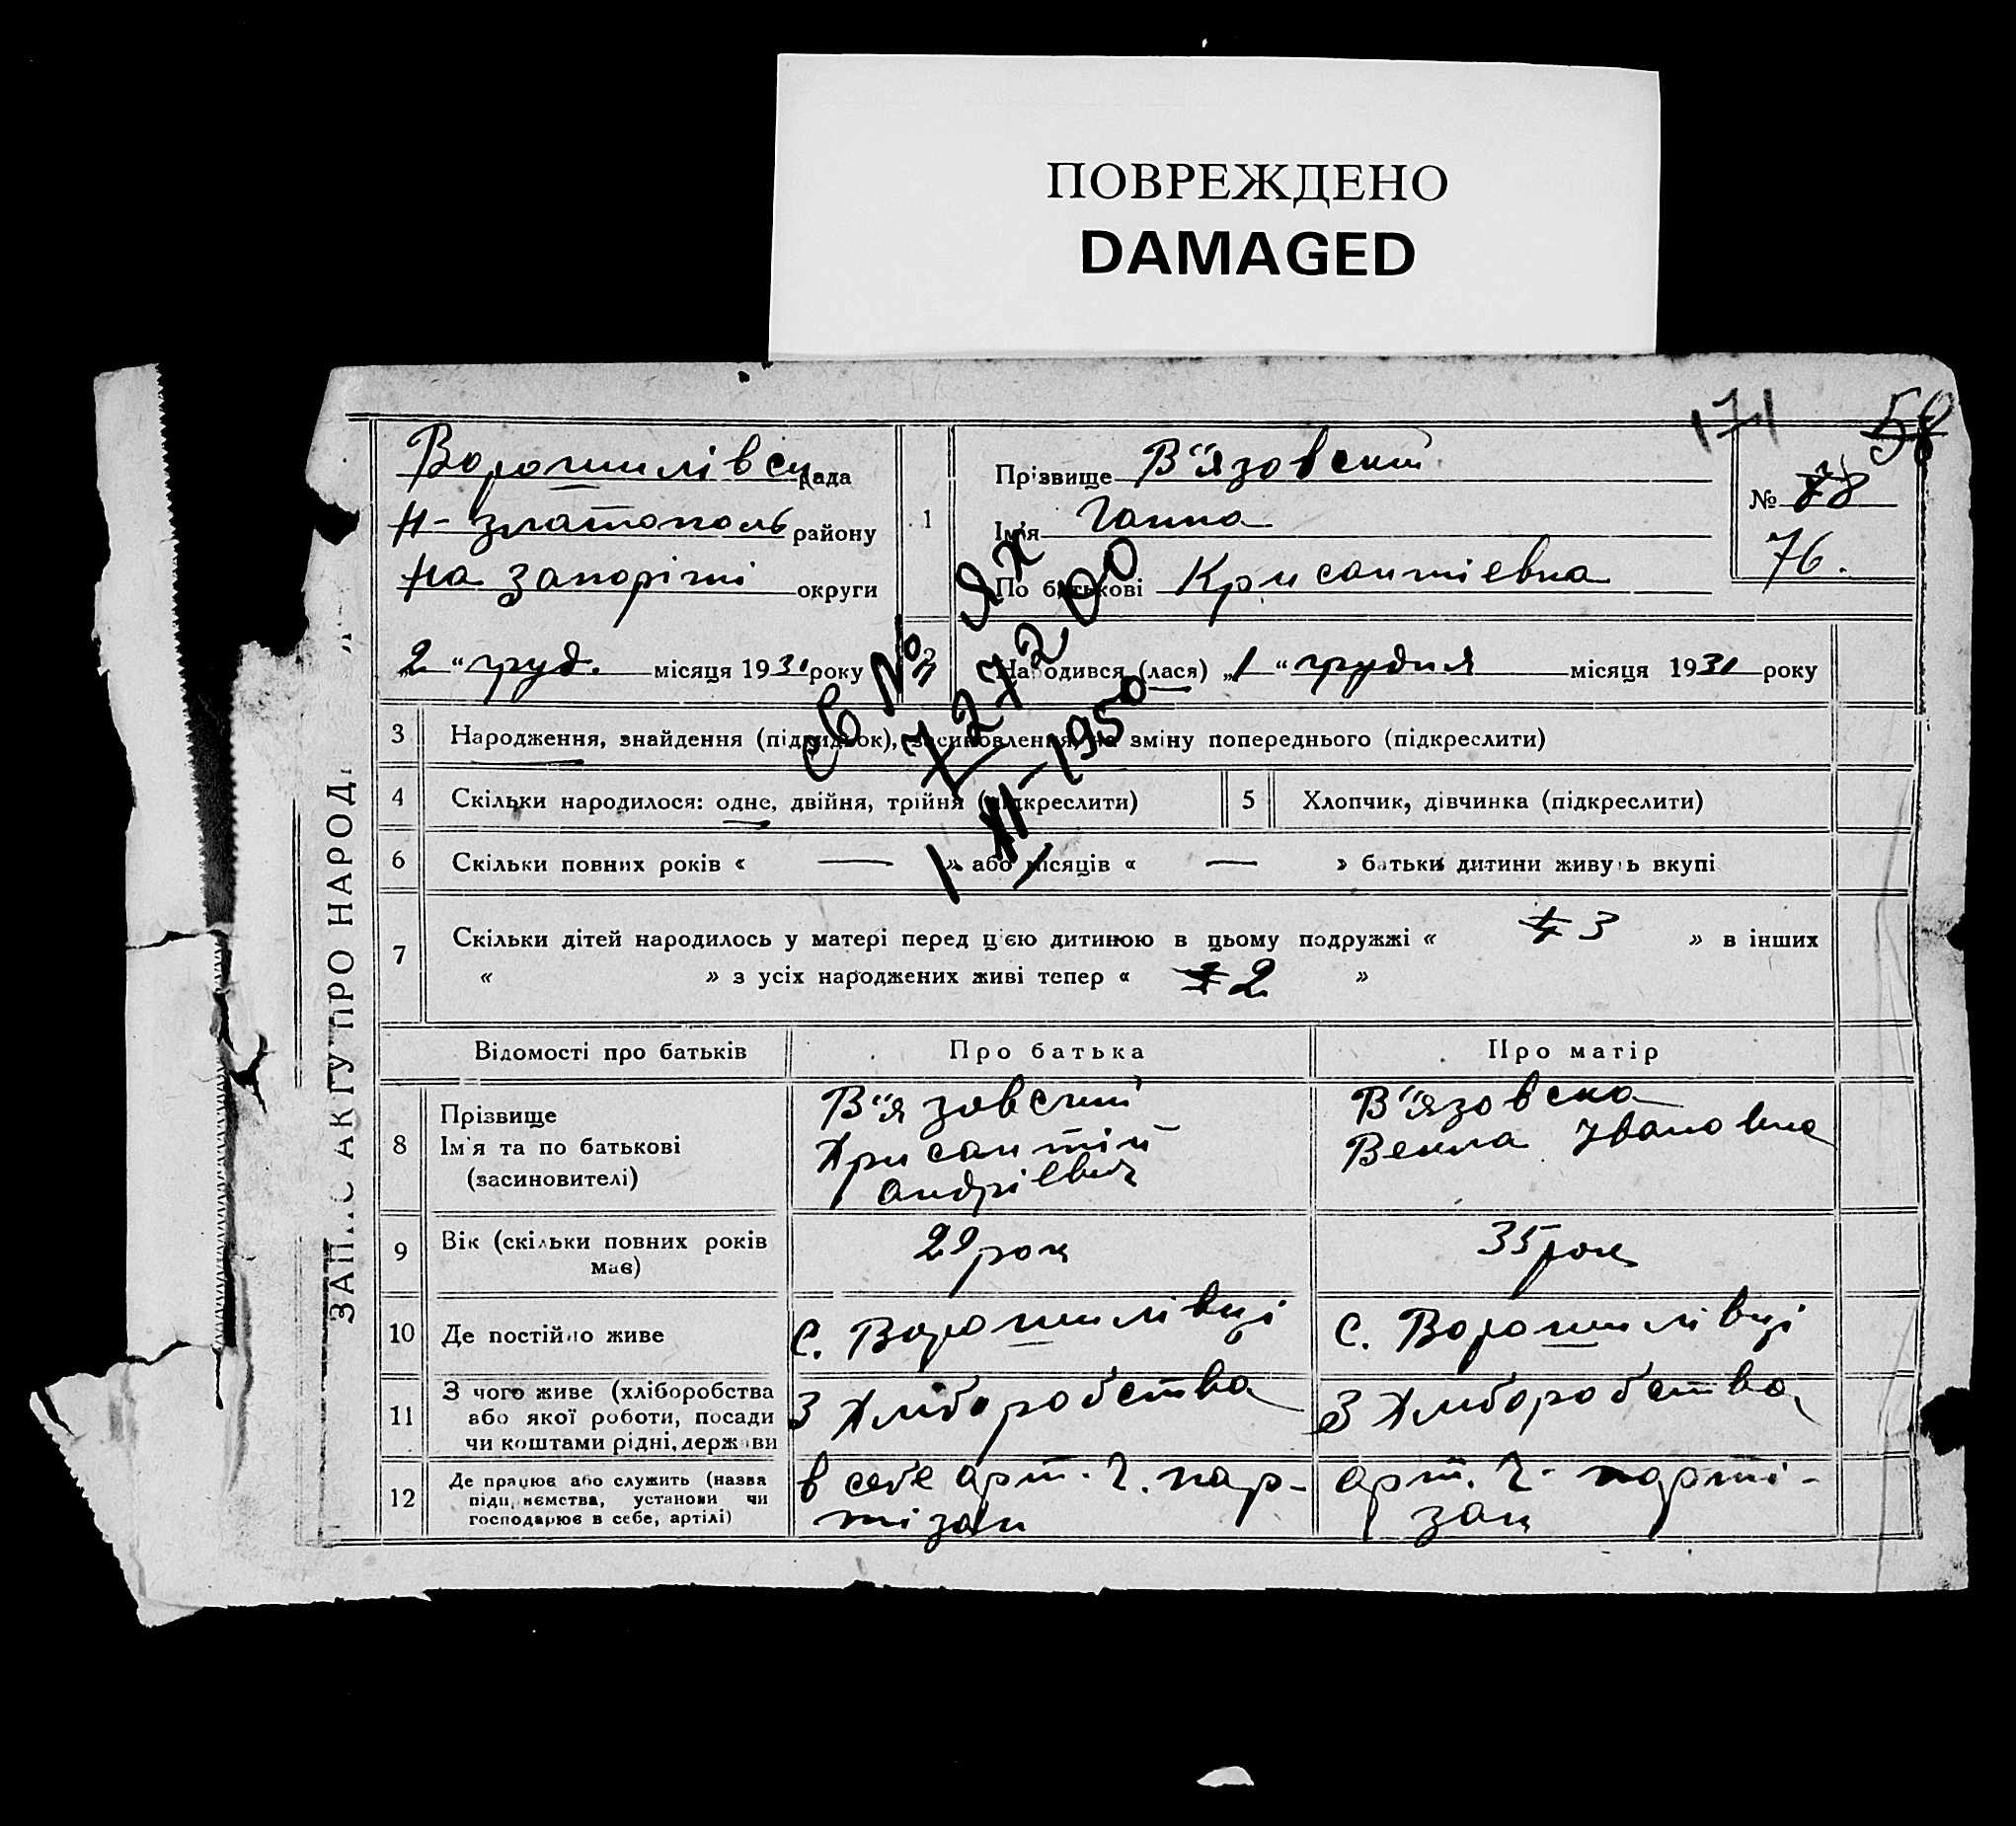 ПОВРЕЖДЕНО
DAMAGED
171 58
Ворошилівсь рада
Н-Златополь району
на Запоріжі округи
1
Прізвище В"язовский
Ім'я Ганна
По батькові Крисантіевна
№ 78
76.
„2“ груд. місяця 1931 року
2
Народився (лася) „1“ грудня місяця 1931 року
св № ЯХ
727200
1/XI-1950
3 Народження, знайдення (підкидьок), засиновлення, на зміну попереднього (підкреслити)
4 Скільки народилося: одне, двійня, трійня (підкреслити)
5 Хлопчик, дівчинка (підкреслити)
6 Скільки повних років « — » або місяців « — » батьки дитини живуть вкупі
7 Скільки дітей народилось у матері перед цією дитиною в цьому подружжі « 3 » в інших
« » з усіх народжених живі тепер « 2 »
Відомості про батьків Про батька Про матір
8 Прізвище
Ім'я та по батькові
(засиновителі)
В"язовский
Хрисантій
Андріевич
В"язовска
Векла Івановна
9 Вік (скільки повних років
має)
29 рок
35 рок
10 Де постійно живе
с. Ворошилівці
с. Ворошилівці
11 З чого живе (хліборобства
або якої роботи, посади
чи коштами рідні, держави
З Хліборобства
З Хліборобства
12 Де працює або служить (назва
підприємства, установи чи
господарює в себе, артілі)
в себе арт. Ч. пар-
тізан
арт. Ч. парті-
зан
ЗАПИС АКТУ ПРО НАРОД